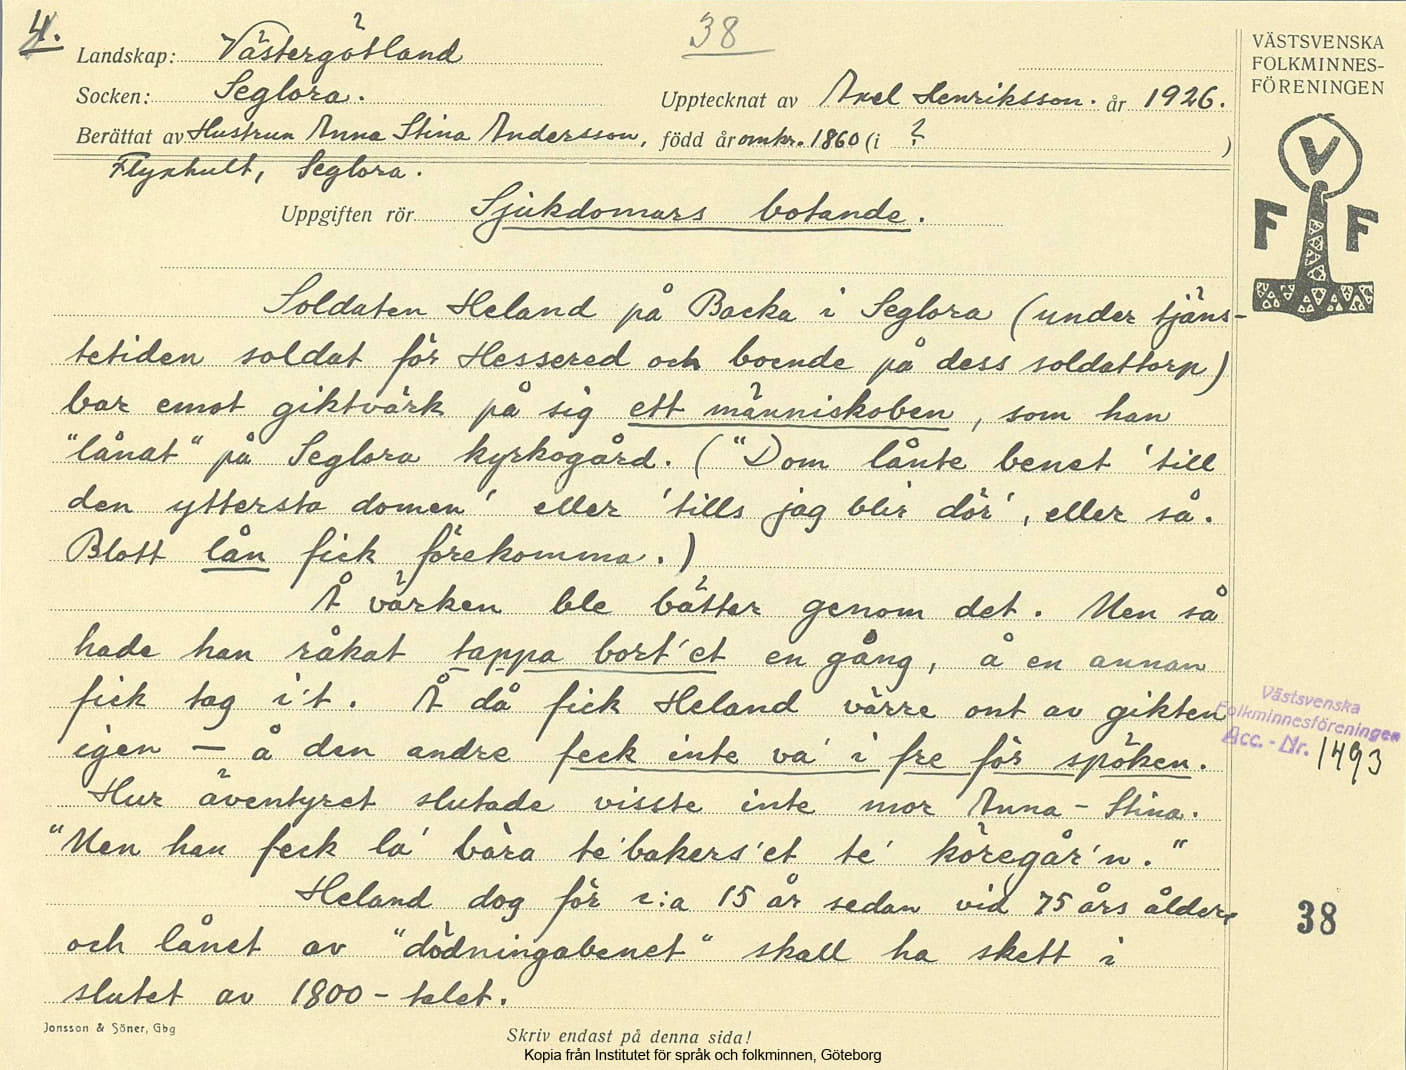 4.
38
Landskap: Västergötland
Socken: Seglora.
Upptecknat av Axel Henriksson. år 1926.
Berättat av Hustrun Anna Stina Andersson, född år omkr. 1860 (i ? )
Flyxhult, Seglora.
Uppgiften rör Sjukdomars botande.
VÄSTSVENSKA
FOLKMINNES-
FÖRENINGEN
V
F F
Soldaten Heland på Backa i Seglora (under tjäns-
tetiden soldat för Hessered och boende på dess soldattorp)
bar emot giktvärk på sig ett människoben, som han
"lånat" på Seglora kyrkogård. ("Dom lånte benet 'till
den yttersta domen' eller 'tills jag blir dör', eller så.
Blott lån fick förekomma.)
Å värken ble bätter genom det. Men så
hade han råkat tappa bort'et en gång, å en annan
fick tag i't. Å då fick Heland värre ont av gikten
igen — å den andre feck inte va' i fre för spöken.
Hur äventyret slutade visste inte mor Anna-Stina.
"Men han feck la' bära te'bakers'et te' köregår'n."
Heland dog för c:a 15 år sedan vid 75 års ålder,
och lånet av "dödningabenet" skall ha skett i
slutet av 1800-talet.
Västsvenska
Folkminnesföreningen
Acc.-Nr. 1493
38
Jonsson & Söner, Gbg
Skriv endast på denna sida!
Kopia från Institutet för språk och folkminnen, Göteborg